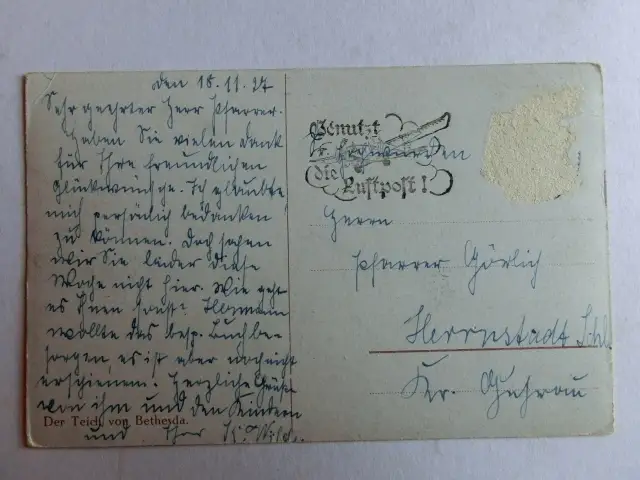 den 18.11.37
Sehr geehrter Herr Pfarrer.
Haben Sie vielen Dank
für Ihre freundlichen
Glückwünsche. Ich glaubte,
mich persönlich bedanken
zu können. Doch sahen
wir Sie leider diese
Woche nicht hier. Wie geht
es Ihnen sonst? Hermann
wollte das besp. Buch be-
sorgen, es ist aber noch nicht
erschienen. Herzliche Grüße
von ihm und den Kindern
und Ihrer
Der Teich von Bethesda.
Benutzt
die
Luftpost!
Sr. Hochwürden
Herrn
Pfarrer Görlich
Herrnstadt Schl.
Kr. Guhrau